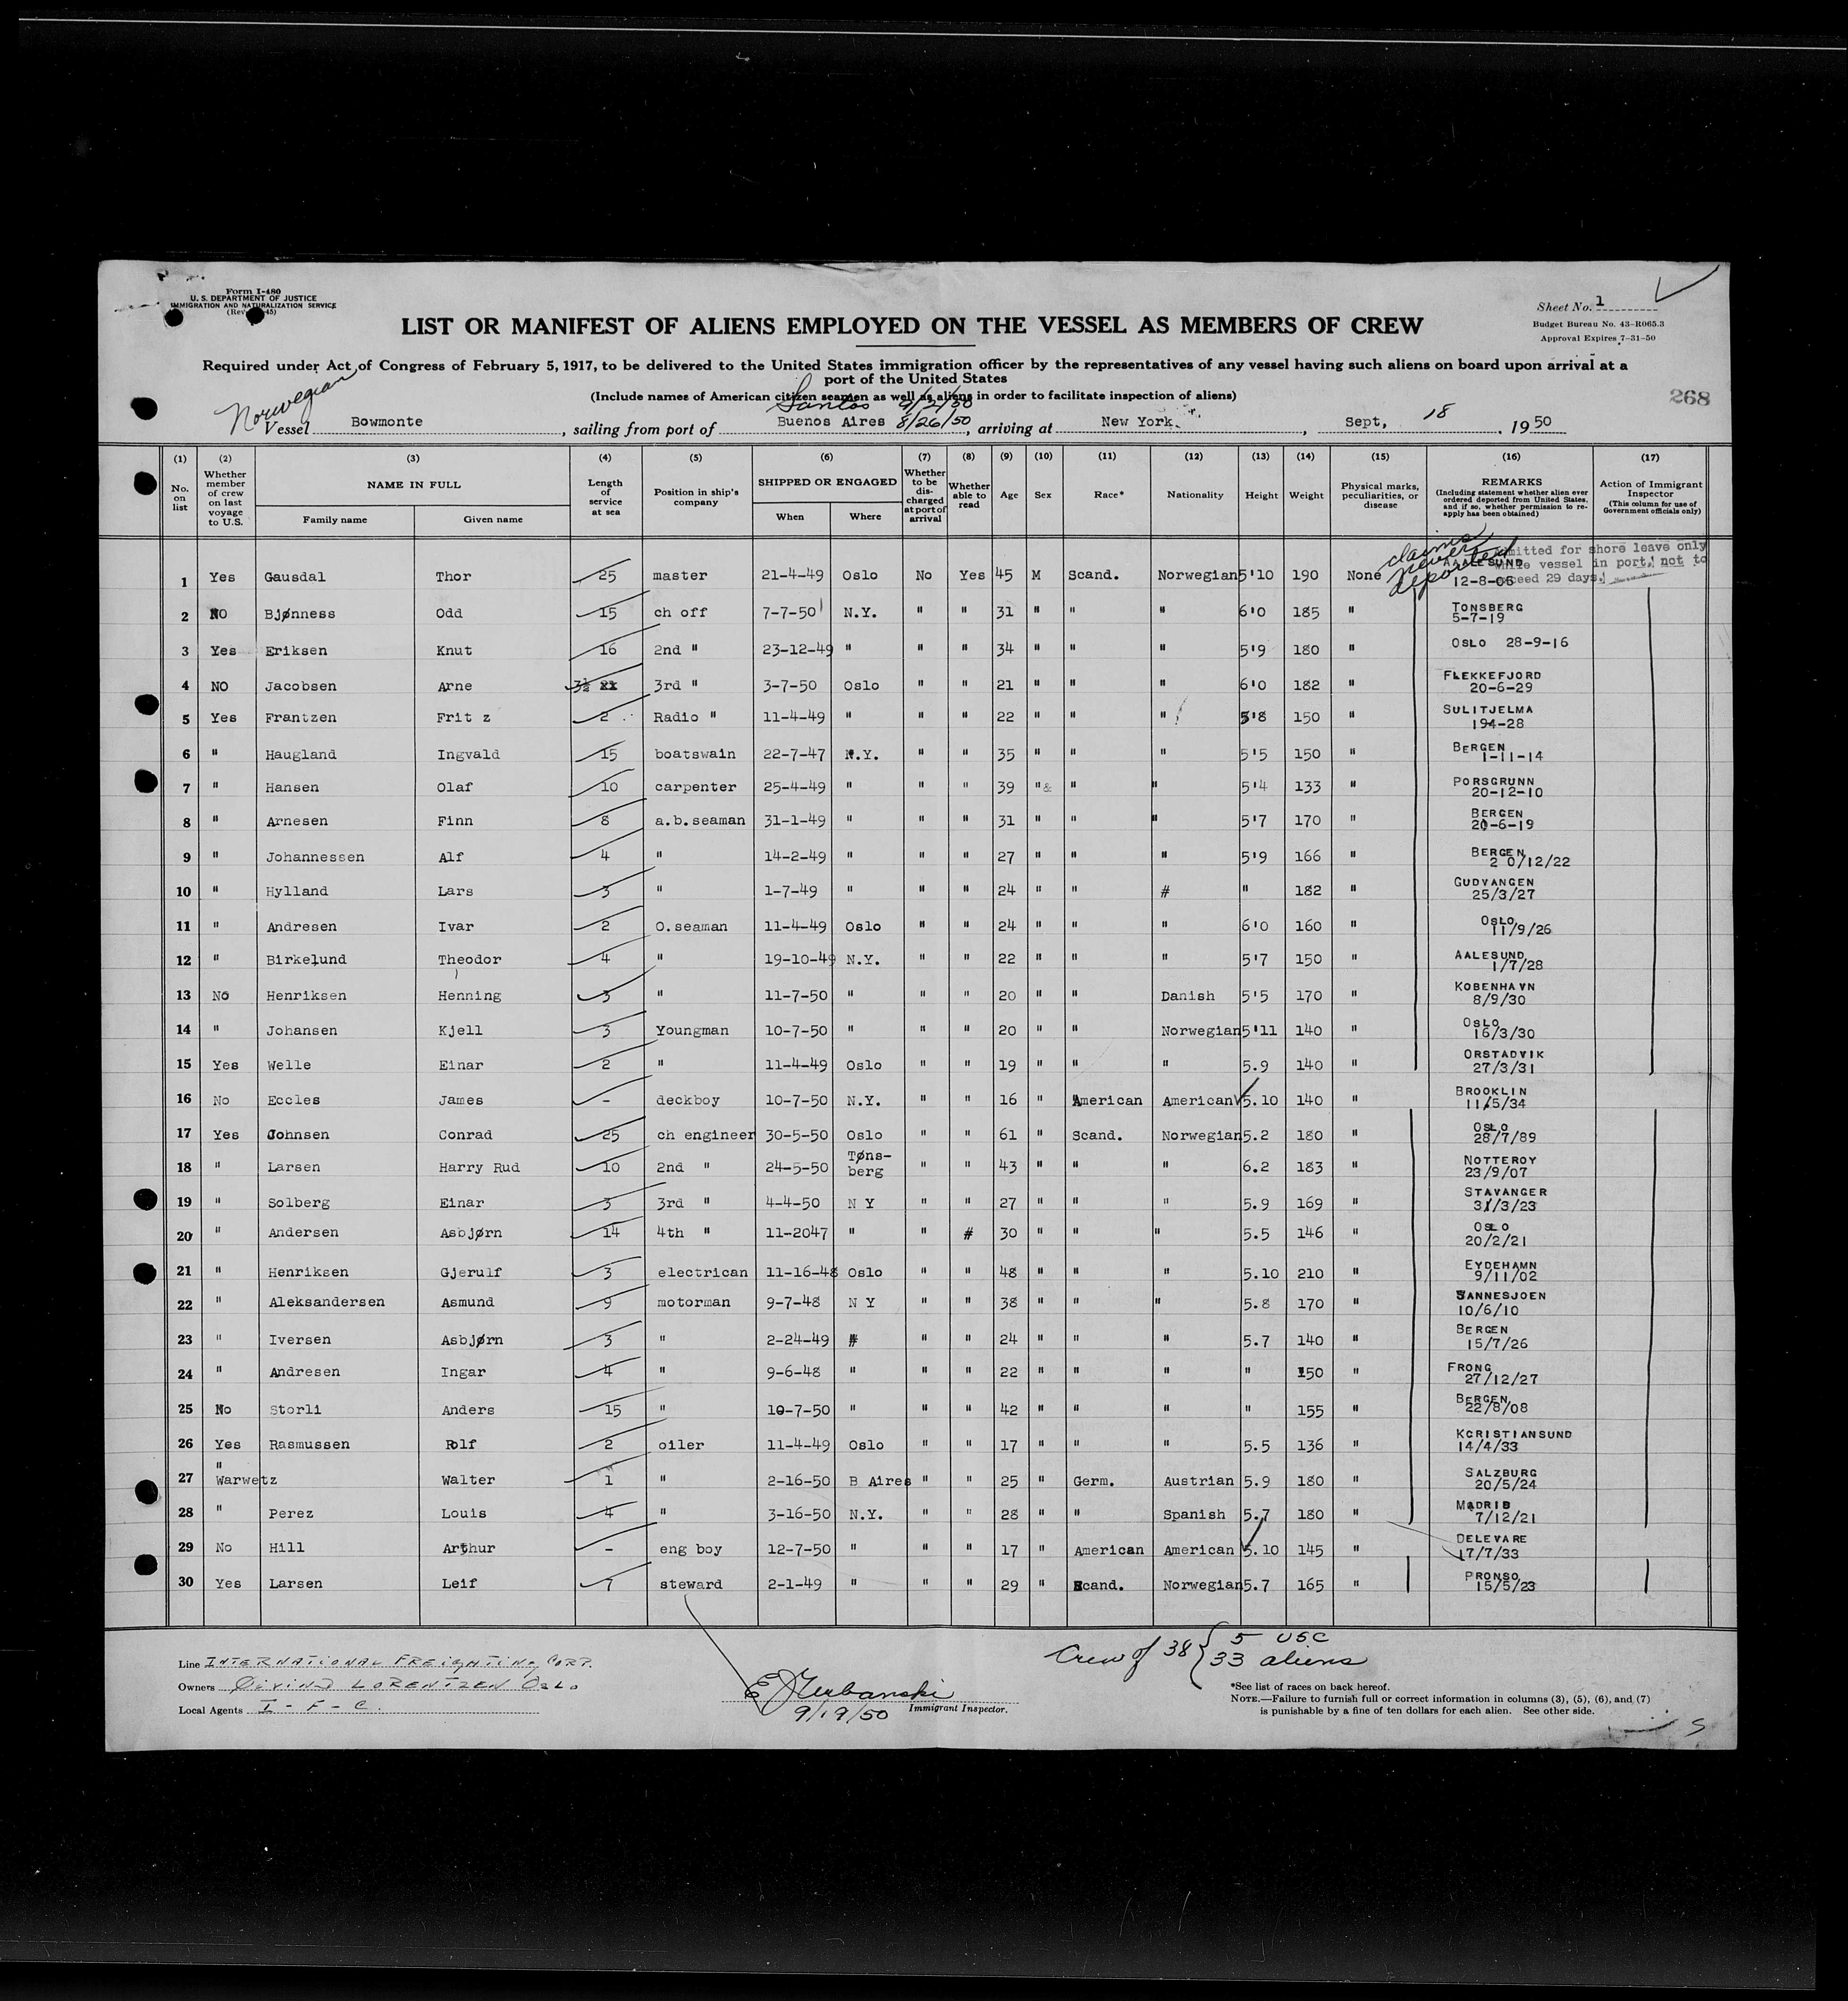 Form I-480
U. S. DEPARTMENT OF JUSTICE
IMMIGRATION AND NATURALIZATION SERVICE
Sheet No. 1
Budget Bureau No. 43-R065.3
Approval Expires 7-31-50
LIST OR MANIFEST OF ALIENS EMPLOYED ON THE VESSEL AS MEMBERS OF CREW
Required under Act of Congress of February 5, 1917, to be delivered to the United States immigration officer by the representatives of any vessel having such aliens on board upon arrival at a
port of the United States
(Include names of American citizen seamen as well as aliens in order to facilitate inspection of aliens)
268
Norwegian
Santos 9/2/50
Vessel Bowmonte, sailing from port of Buenos Aires 8/26/50, arriving at New York, Sept, 18, 1950
(1) (2) (3) (4) (5) (6) (7) (8) (9) (10) (11) (12) (13) (14) (15) (16) (17)
No. on list
Whether member of crew on last voyage to U.S.
NAME IN FULL
Family name
Given name
Length of service at sea
Position in ship's company
SHIPPED OR ENGAGED
When
Where
Whether to be discharged at port of arrival
Whether able to read
Age
Sex
Race*
Nationality
Height
Weight
Physical marks, peculiarities, or disease
REMARKS
(Including statement whether alien ever ordered deported from United States, and if so, whether permission to reapply has been obtained)
Action of Immigrant Inspector
(This column for use of Government officials only)
claims never deported
mitted for shore leave only
while vessel in port, not to
exceed 29 days.
1 Yes Gausdal Thor 25 master 21-4-49 Oslo No Yes 45 M Scand. Norwegian 5'10 190 None AALESUND 12-8-05
2 NO Bjønness Odd 15 ch off 7-7-50 N.Y. " " 31 " " " 6'0 185 " TONSBERG 5-7-19
3 Yes Eriksen Knut 16 2nd " 23-12-49 " " " 34 " " " 5'9 180 " OSLO 28-9-16
4 NO Jacobsen Arne 3½ 3rd " 3-7-50 Oslo " " 21 " " " 6'0 182 " FLEKKEFJORD 20-6-29
5 Yes Frantzen Frit z 2 Radio " 11-4-49 " " " 22 " " " 5'8 150 " SULITJELMA 194-28
6 " Haugland Ingvald 15 boatswain 22-7-47 N.Y. " " 35 " " " 5'5 150 " BERGEN 1-11-14
7 " Hansen Olaf 10 carpenter 25-4-49 " " " 39 "& " " 5'4 133 " PORSGRUNN 20-12-10
8 " Arnesen Finn 8 a.b.seaman 31-1-49 " " " 31 " " " 5'7 170 " BERGEN 20-6-19
9 " Johannessen Alf 4 " 14-2-49 " " " 27 " " " 5'9 166 " BERGEN 2 0/12/22
10 " Hylland Lars 3 " 1-7-49 " " " 24 " " # " 182 " GUDVANGEN 25/3/27
11 " Andresen Ivar 2 O.seaman 11-4-49 Oslo " " 24 " " " 6'0 160 " OSLO 11/9/26
12 " Birkelund Theodor 4 " 19-10-49 N.Y. " " 22 " " " 5'7 150 " AALESUND 1/7/28
13 No Henriksen Henning 3 " 11-7-50 " " " 20 " " Danish 5'5 170 " KOBENHAVN 8/9/30
14 " Johansen Kjell 3 Youngman 10-7-50 " " " 20 " " Norwegian 5'11 140 " OSLO 16/3/30
15 Yes Welle Einar 2 " 11-4-49 Oslo " " 19 " " " 5.9 140 " ORSTADVIK 27/3/31
16 No Eccles James - deckboy 10-7-50 N.Y. " " 16 " American American 5.10 140 " BROOKLIN 11/5/34
17 Yes Johnsen Conrad 25 ch engineer 30-5-50 Oslo " " 61 " Scand. Norwegian 5.2 180 " OSLO 28/7/89
18 " Larsen Harry Rud 10 2nd " 24-5-50 Tøns-berg " " 43 " " " 6.2 183 " NOTTEROY 23/9/07
19 " Solberg Einar 3 3rd " 4-4-50 N Y " " 27 " " " 5.9 169 " STAVANGER 31/3/23
20 " Andersen Asbjørn 14 4th " 11-2047 " " # 30 " " " 5.5 146 " OSLO 20/2/21
21 " Henriksen Gjerulf 3 electrican 11-16-48 Oslo " " 48 " " " 5.10 210 " EYDEHAMN 9/11/02
22 " Aleksandersen Asmund 9 motorman 9-7-48 N Y " " 38 " " " 5.8 170 " SANNESJOEN 10/6/10
23 " Iversen Asbjørn 3 " 2-24-49 # " " 24 " " " 5.7 140 " BERGEN 15/7/26
24 " Andresen Ingar 4 " 9-6-48 " " " 22 " " " " 150 " FRONG 27/12/27
25 No Storli Anders 15 " 10-7-50 " " " 42 " " " " 155 " BERGEN 22/8/08
26 Yes Rasmussen Rolf 2 oiler 11-4-49 Oslo " " 17 " " " 5.5 136 " KCRISTIANSUND 14/4/33
27 " Warwetz Walter 1 " 2-16-50 B Aires " " 25 " Germ. Austrian 5.9 180 " SALZBURG 20/5/24
28 " Perez Louis 4 " 3-16-50 N.Y. " " 28 " " Spanish 5.7 180 " MADRID 7/12/21
29 No Hill Arthur - eng boy 12-7-50 " " " 17 " American American 5.10 145 " DELEVARE 17/7/33
30 Yes Larsen Leif 7 steward 2-1-49 " " " 29 " Scand. Norwegian 5.7 165 " PRONSO 15/5/23
Line INTERNATIONAL FREIGHTING CORP.
Owners ØIVIND LORENTZEN OSLO
Local Agents I - F - C.
E J Urbanski
9/19/50 Immigrant Inspector.
Crew of 38 { 5 USC
33 aliens
*See list of races on back hereof.
NOTE.—Failure to furnish full or correct information in columns (3), (5), (6), and (7)
is punishable by a fine of ten dollars for each alien. See other side.